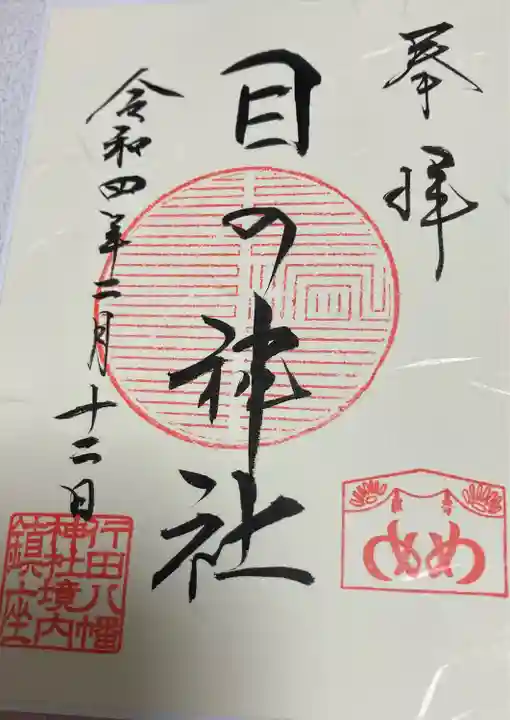 奉拝
目の神社
令和四年二月十二日
め
行田八幡
神社境内
鎮座